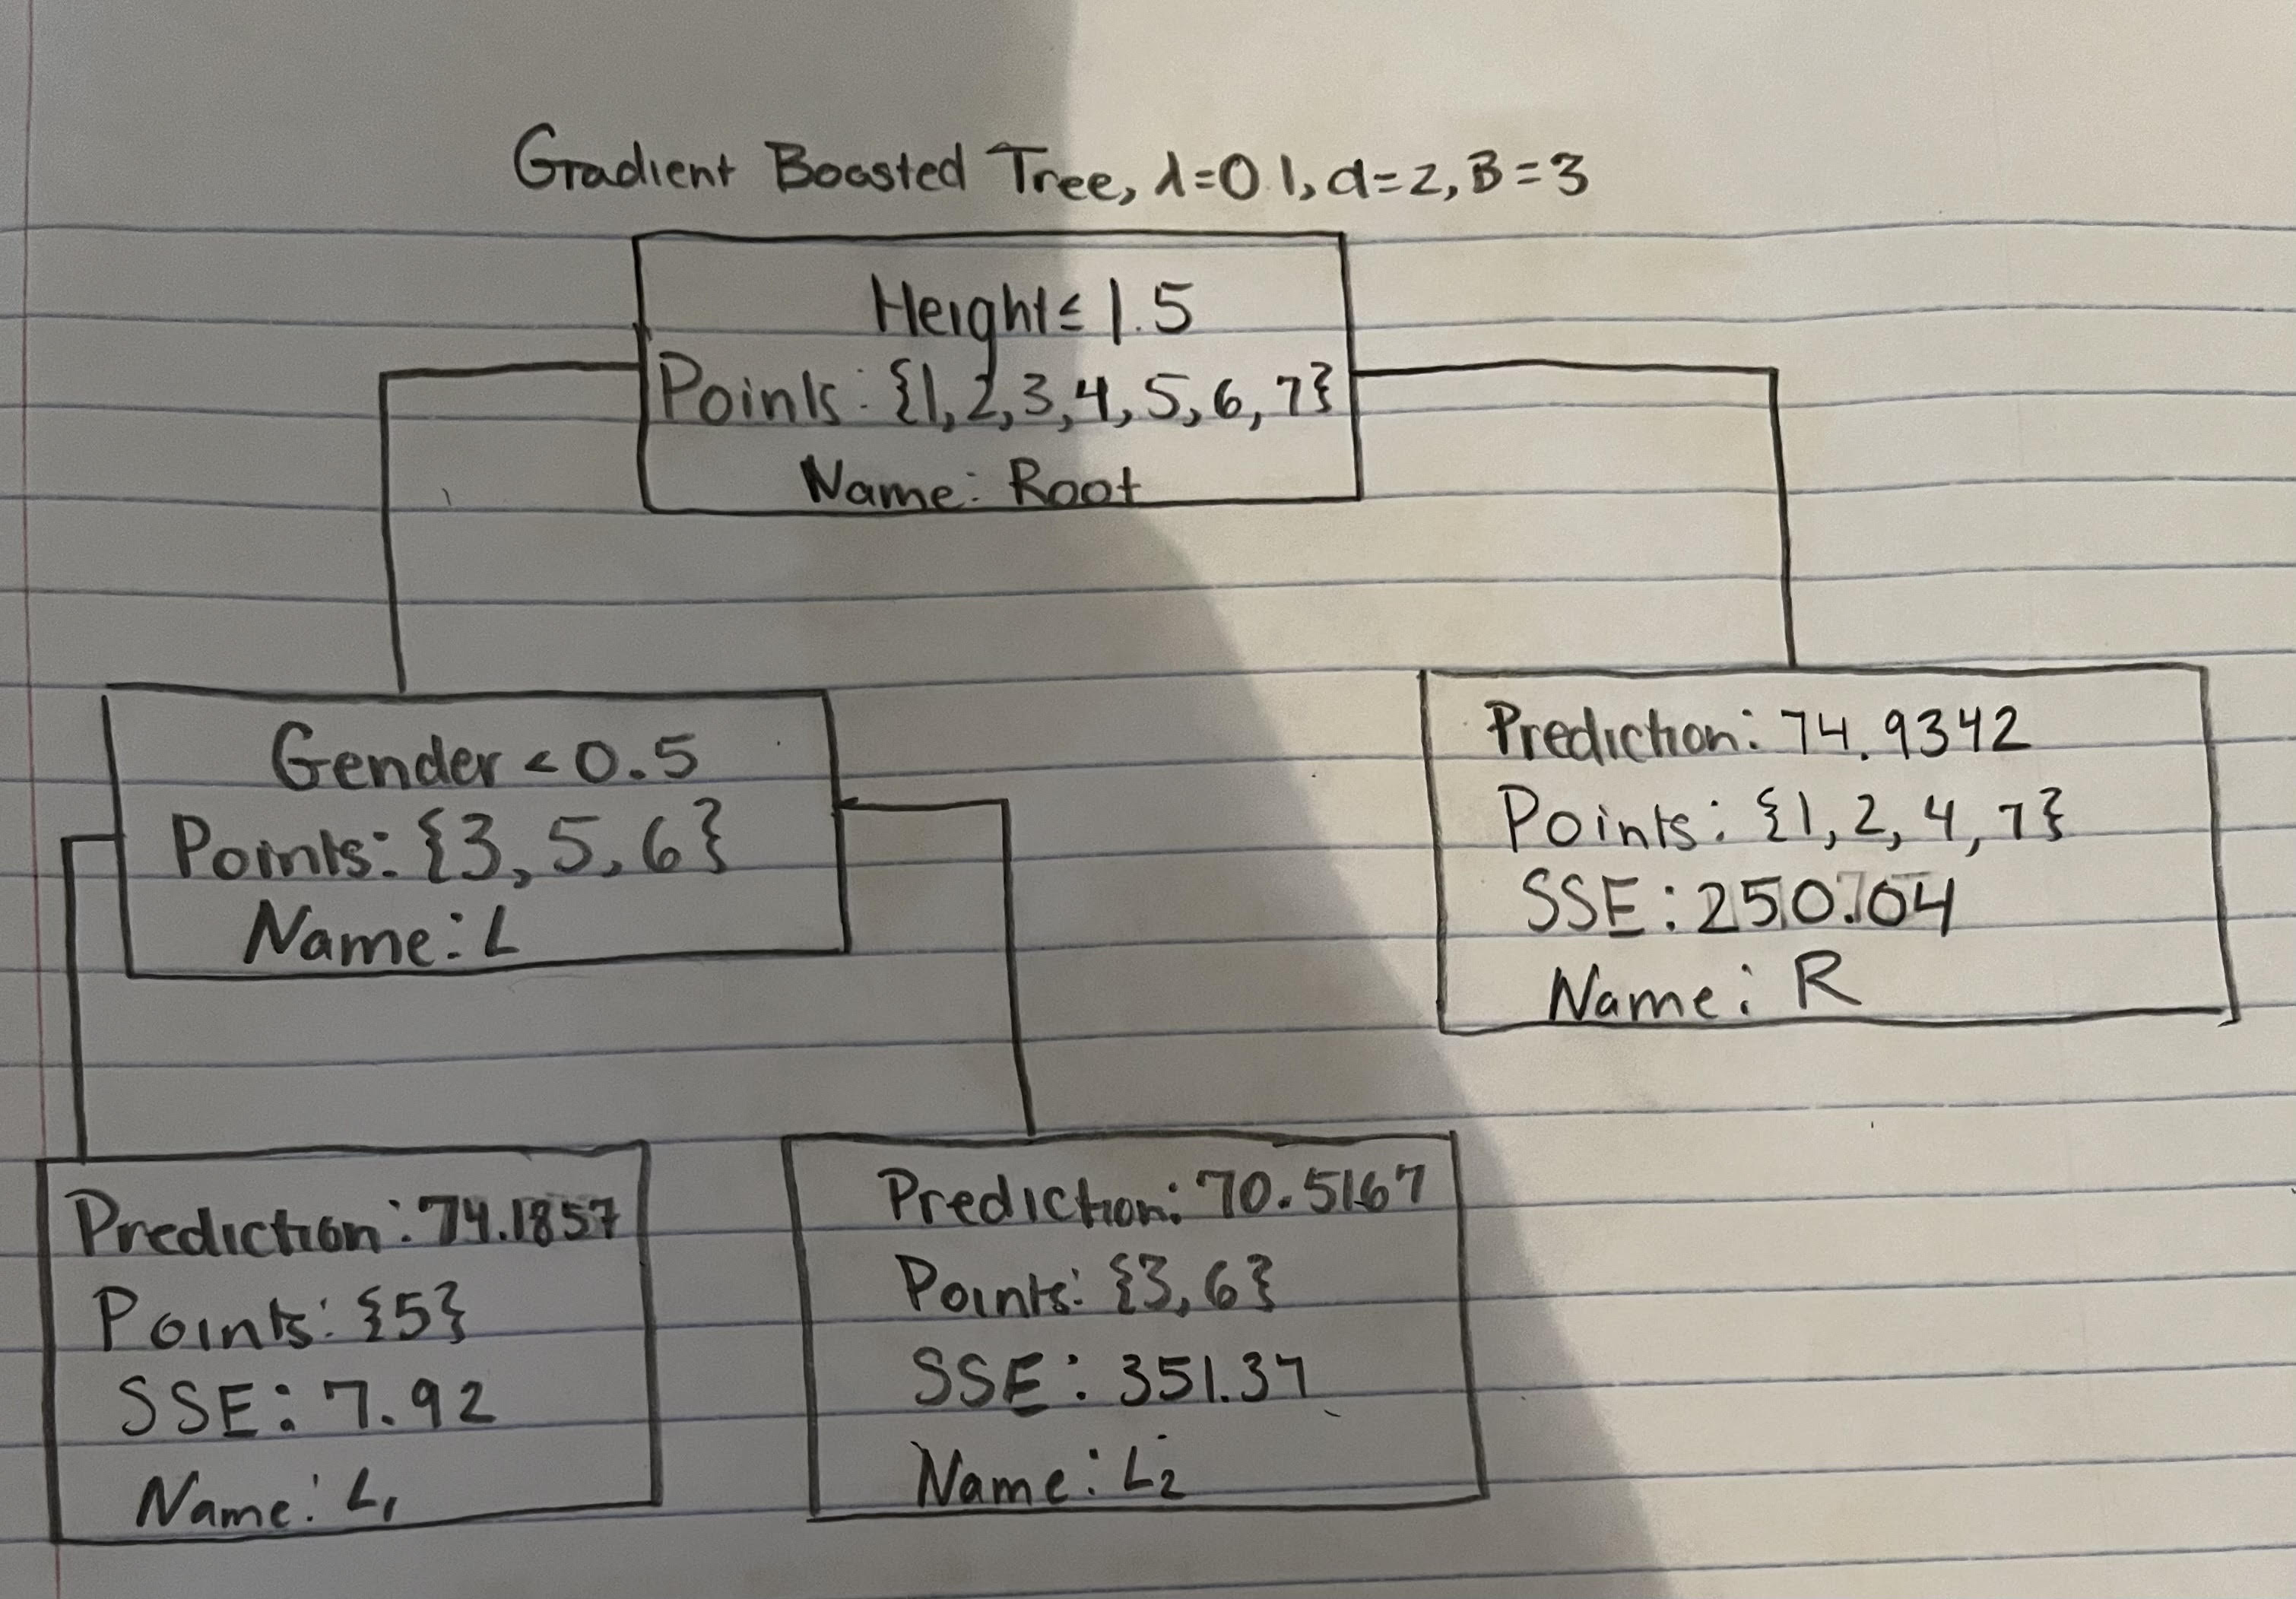 Gradient Boosted Tree, λ=0.1, d=2, B=3
Height≤ 1.5
Points: {1, 2, 3, 4, 5, 6, 7}
Name: Root
Gender < 0.5
Points: {3, 5, 6}
Name: L
Prediction: 74.9342
Points: {1, 2, 4, 7}
SSE: 250.04
Name: R
Prediction: 74.1857
Points: {5}
SSE: 7.92
Name: L₁
Prediction: 70.5167
Points: {3, 6}
SSE: 351.37
Name: L₂